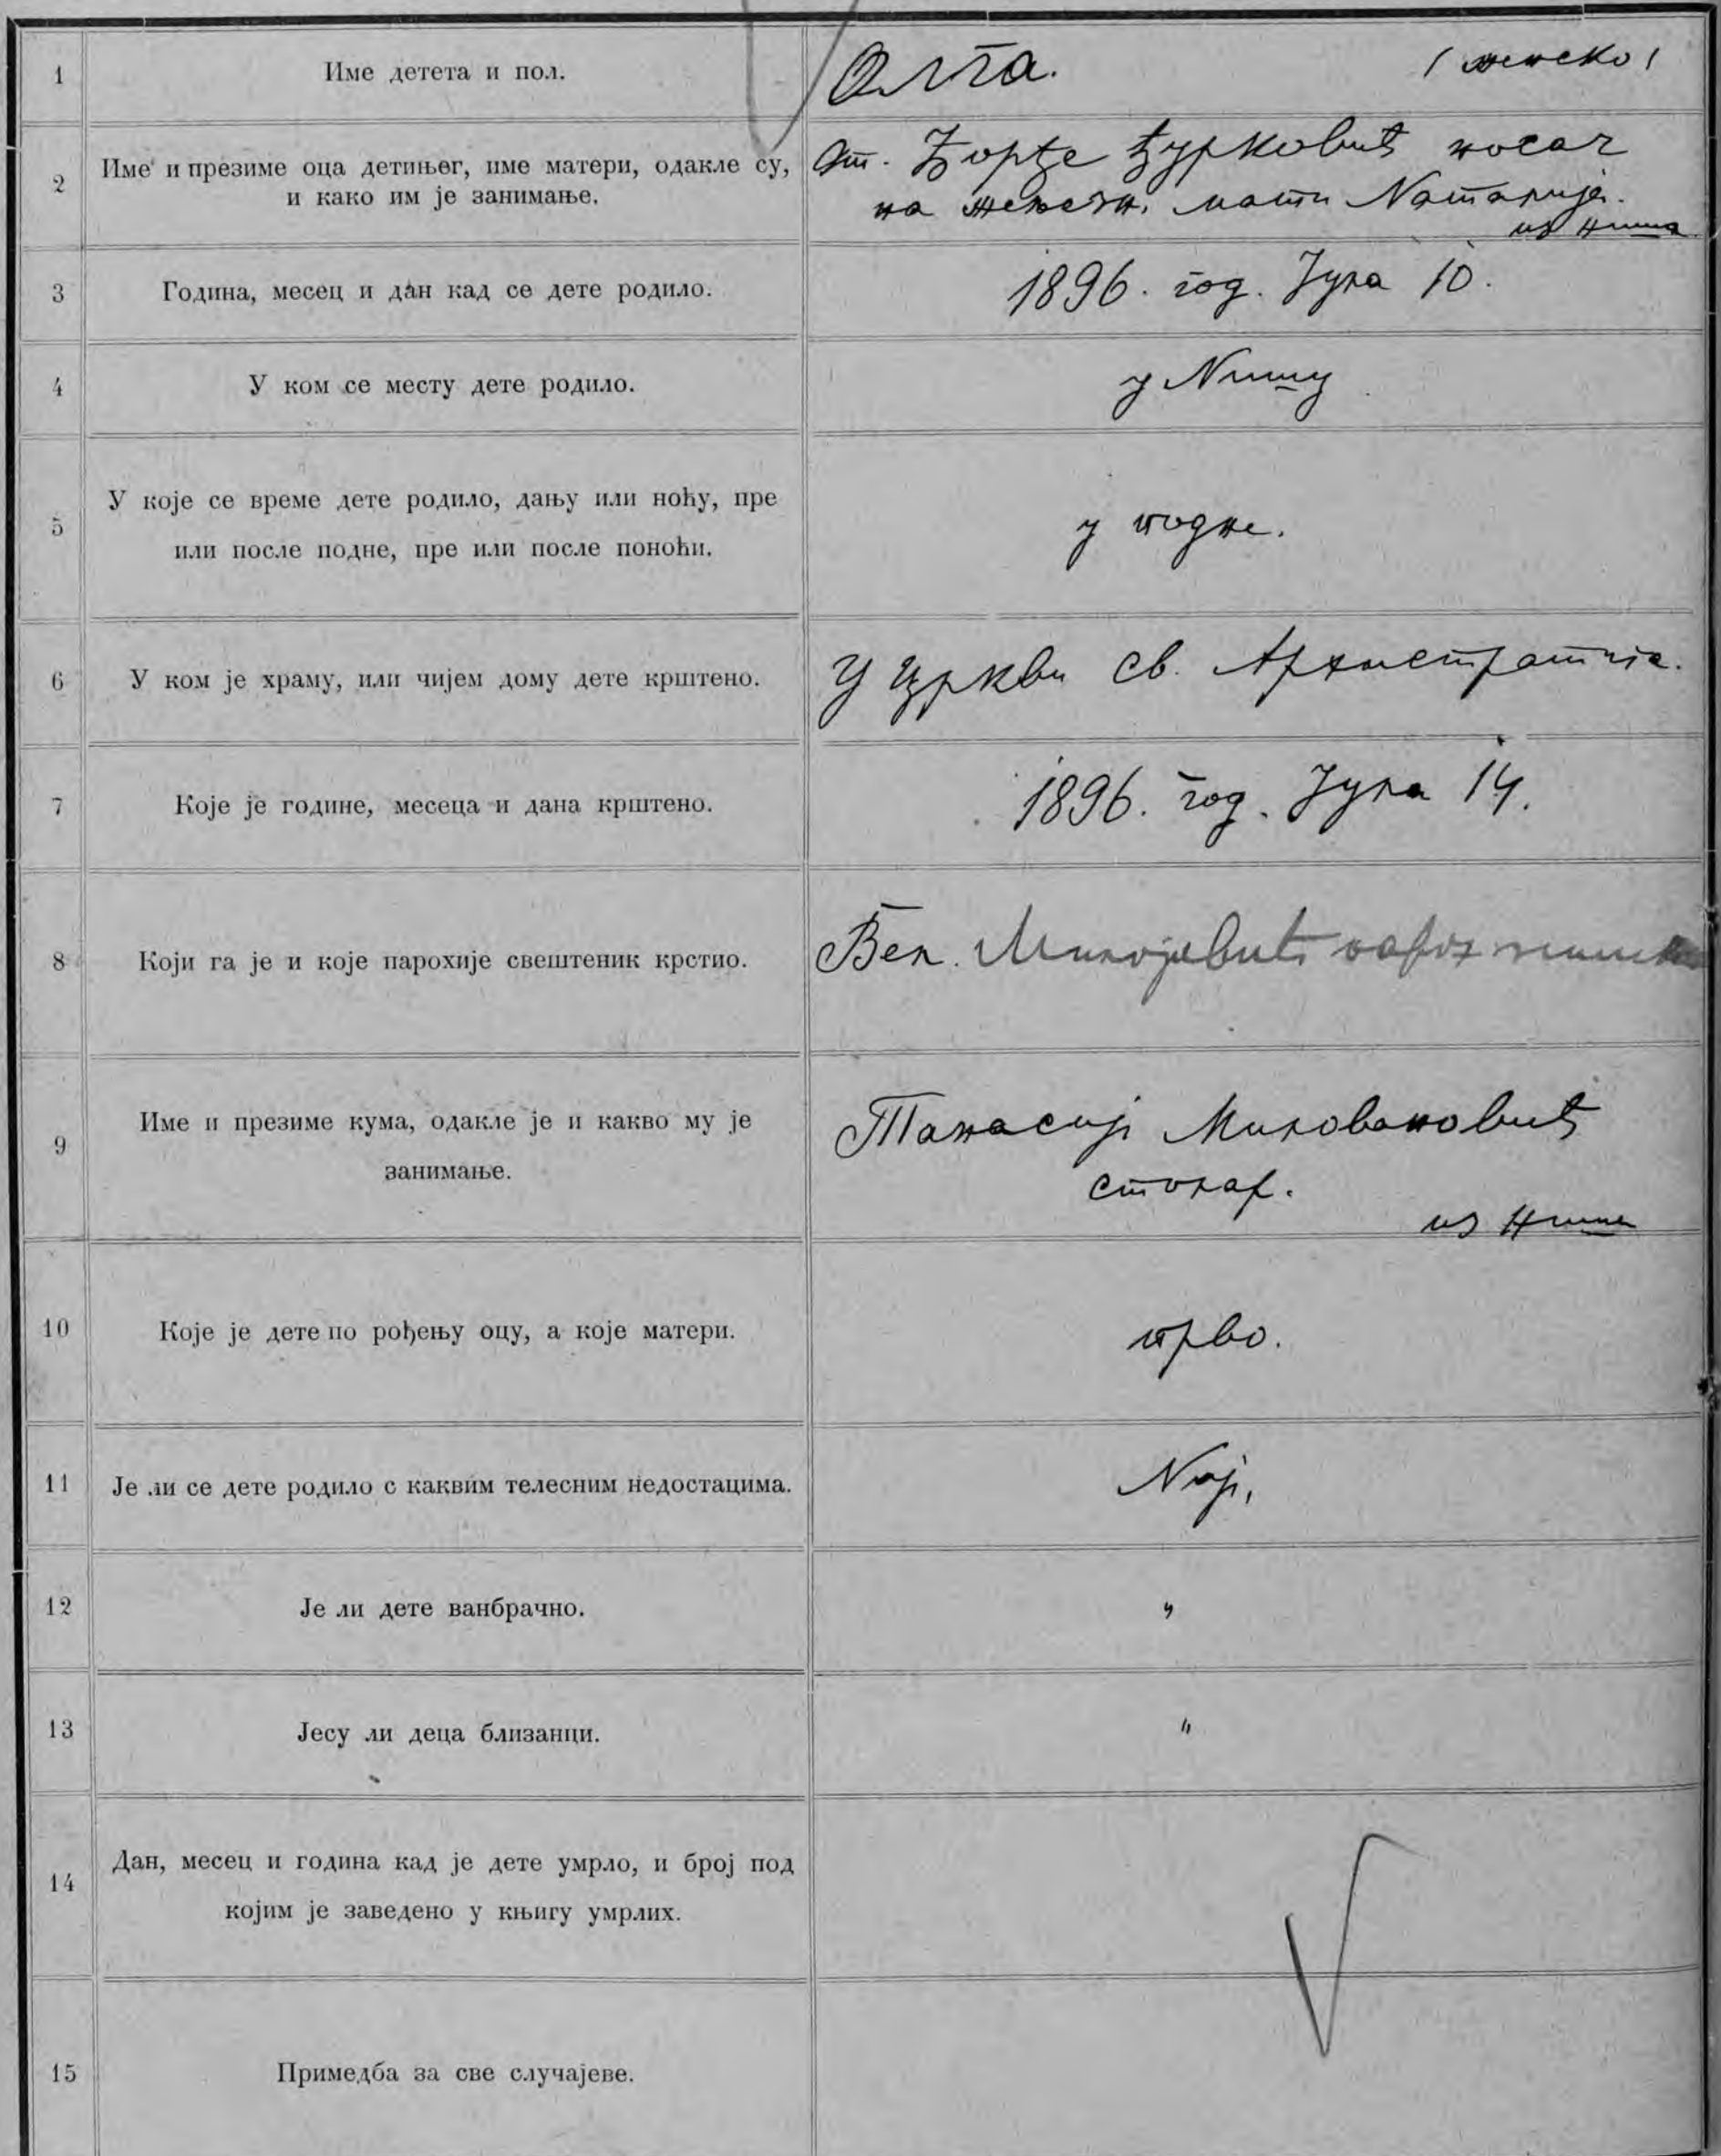 1
Име детета и пол.
Олга. (женско)
2
Име и презиме оца детињег, име матери, одакле су,
и како им је занимање.
От. Ђорђе Ђурковић носач
на жељезн. мати Наталија.
из Ниша
3
Година, месец и дан кад се дете родило.
1896. год. Јула 10.
4
У ком се месту дете родило.
у Нишу
5
У које се време дете родило, дању или ноћу, пре
или после подне, пре или после поноћи.
у подне.
6
У ком је храму, или чијем дому дете крштено.
У цркви св. Архистратига.
7
Које је године, месеца и дана крштено.
1896. год. Јула 14.
8
Који га је и које парохије свештеник крстио.
Вел. Милојевић парох нишки
9
Име и презиме кума, одакле је и какво му је
занимање.
Танасије Миловановић
столар.
из Ниша
10
Које је дете по рођењу оцу, а које матери.
прво.
11
Је ли се дете родило с каквим телесним недостацима.
Није,
12
Је ли дете ванбрачно.
"
13
Јесу ли деца близанци.
"
14
Дан, месец и година кад је дете умрло, и број под
којим је заведено у књигу умрлих.
15
Примедба за све случајеве.